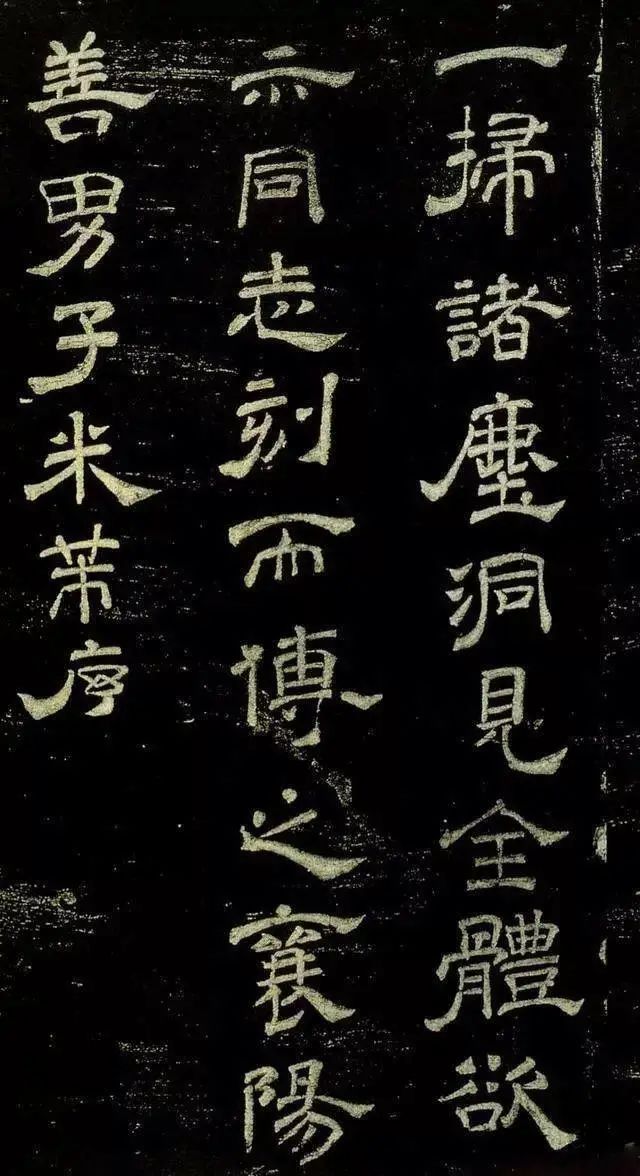 一掃諸塵洞見全體欲
示同志刻而傳之襄陽
善男子米芾序